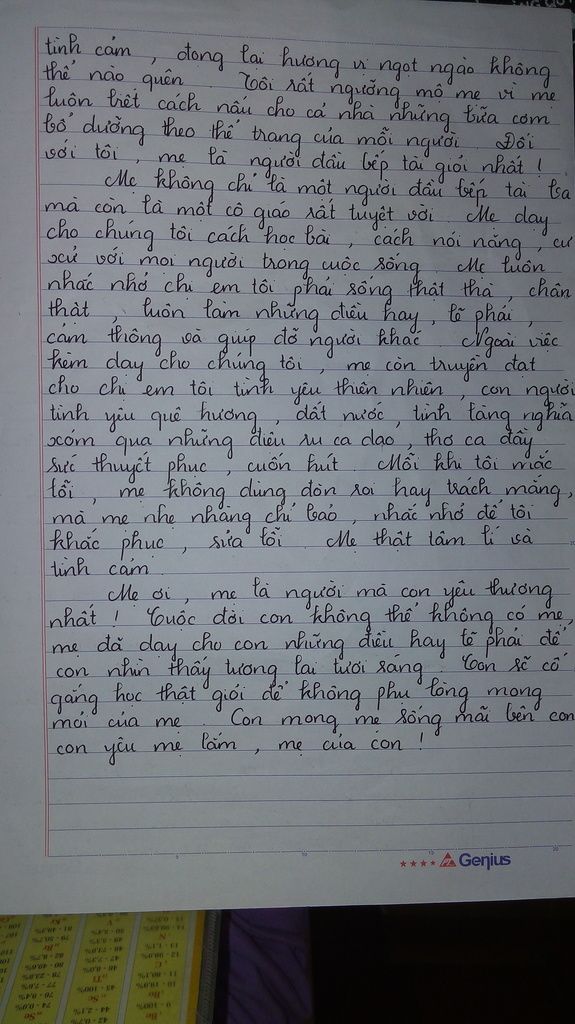 tình cảm , đong lại hương vị ngọt ngào không
thể nào quên . Tôi rất ngưỡng mộ mẹ vì mẹ
luôn biết cách nấu cho cả nhà những bữa cơm
bổ dưỡng theo thể trạng của mỗi người . Đối
với tôi , mẹ là người đầu bếp tài giỏi nhất !
Mẹ không chỉ là một người đầu bếp tài ba
mà còn là một cô giáo rất tuyệt vời . Mẹ dạy
cho chúng tôi cách học bài , cách nói năng , cư
xử với mọi người trong cuộc sống . Mẹ luôn
nhắc nhở chị em tôi phải sống thật thà , chân
thật , luôn làm những điều hay , lẽ phải ,
cảm thông và giúp đỡ người khác . Ngoài việc
kèm dạy cho chúng tôi , mẹ còn truyền đạt
cho chị em tôi tình yêu thiên nhiên , con người
tình yêu quê hương , đất nước , tình làng nghĩa
xóm qua những điệu ru ca dao , thơ ca đầy
sức thuyết phục , cuốn hút . Mỗi khi tôi mắc
lỗi , mẹ không dùng đòn roi hay trách mắng ,
mà mẹ nhẹ nhàng chỉ bảo , nhắc nhở để tôi
khắc phục , sửa lỗi . Mẹ thật tâm lí và
tình cảm .
Mẹ ơi , mẹ là người mà con yêu thương
nhất ! Cuộc đời con không thể không có mẹ ,
mẹ đã dạy cho con những điều hay lẽ phải để
con nhìn thấy tương lai tươi sáng . Con sẽ cố
gắng học thật giỏi để không phụ lòng mong
mỏi của mẹ . Con mong mẹ sống mãi bên con
con yêu mẹ lắm , mẹ của con !
Genius